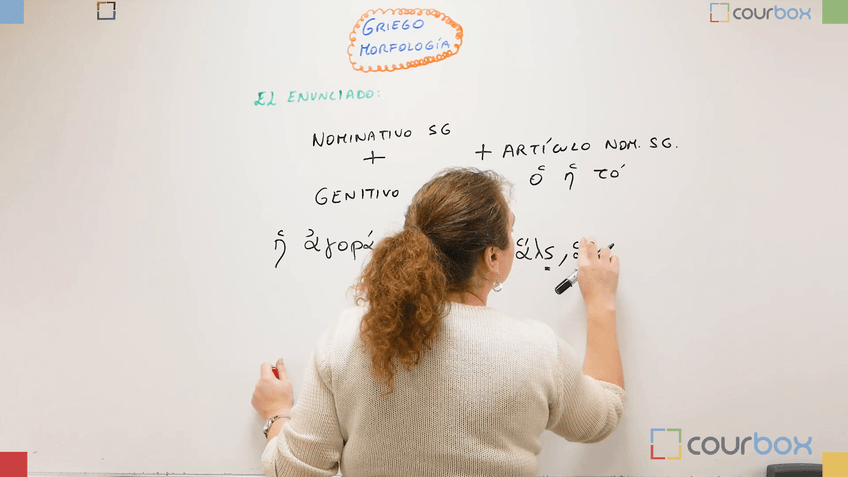 courbox
GRIEGO
MORFOLOGÍA
EL ENUNCIADO:
NOMINATIVO SG
+
+ ARTÍCULO NOM. SG.
ὁ ἡ τό
GENITIVO
ἡ ἀγορά
ἅλς,
courbox